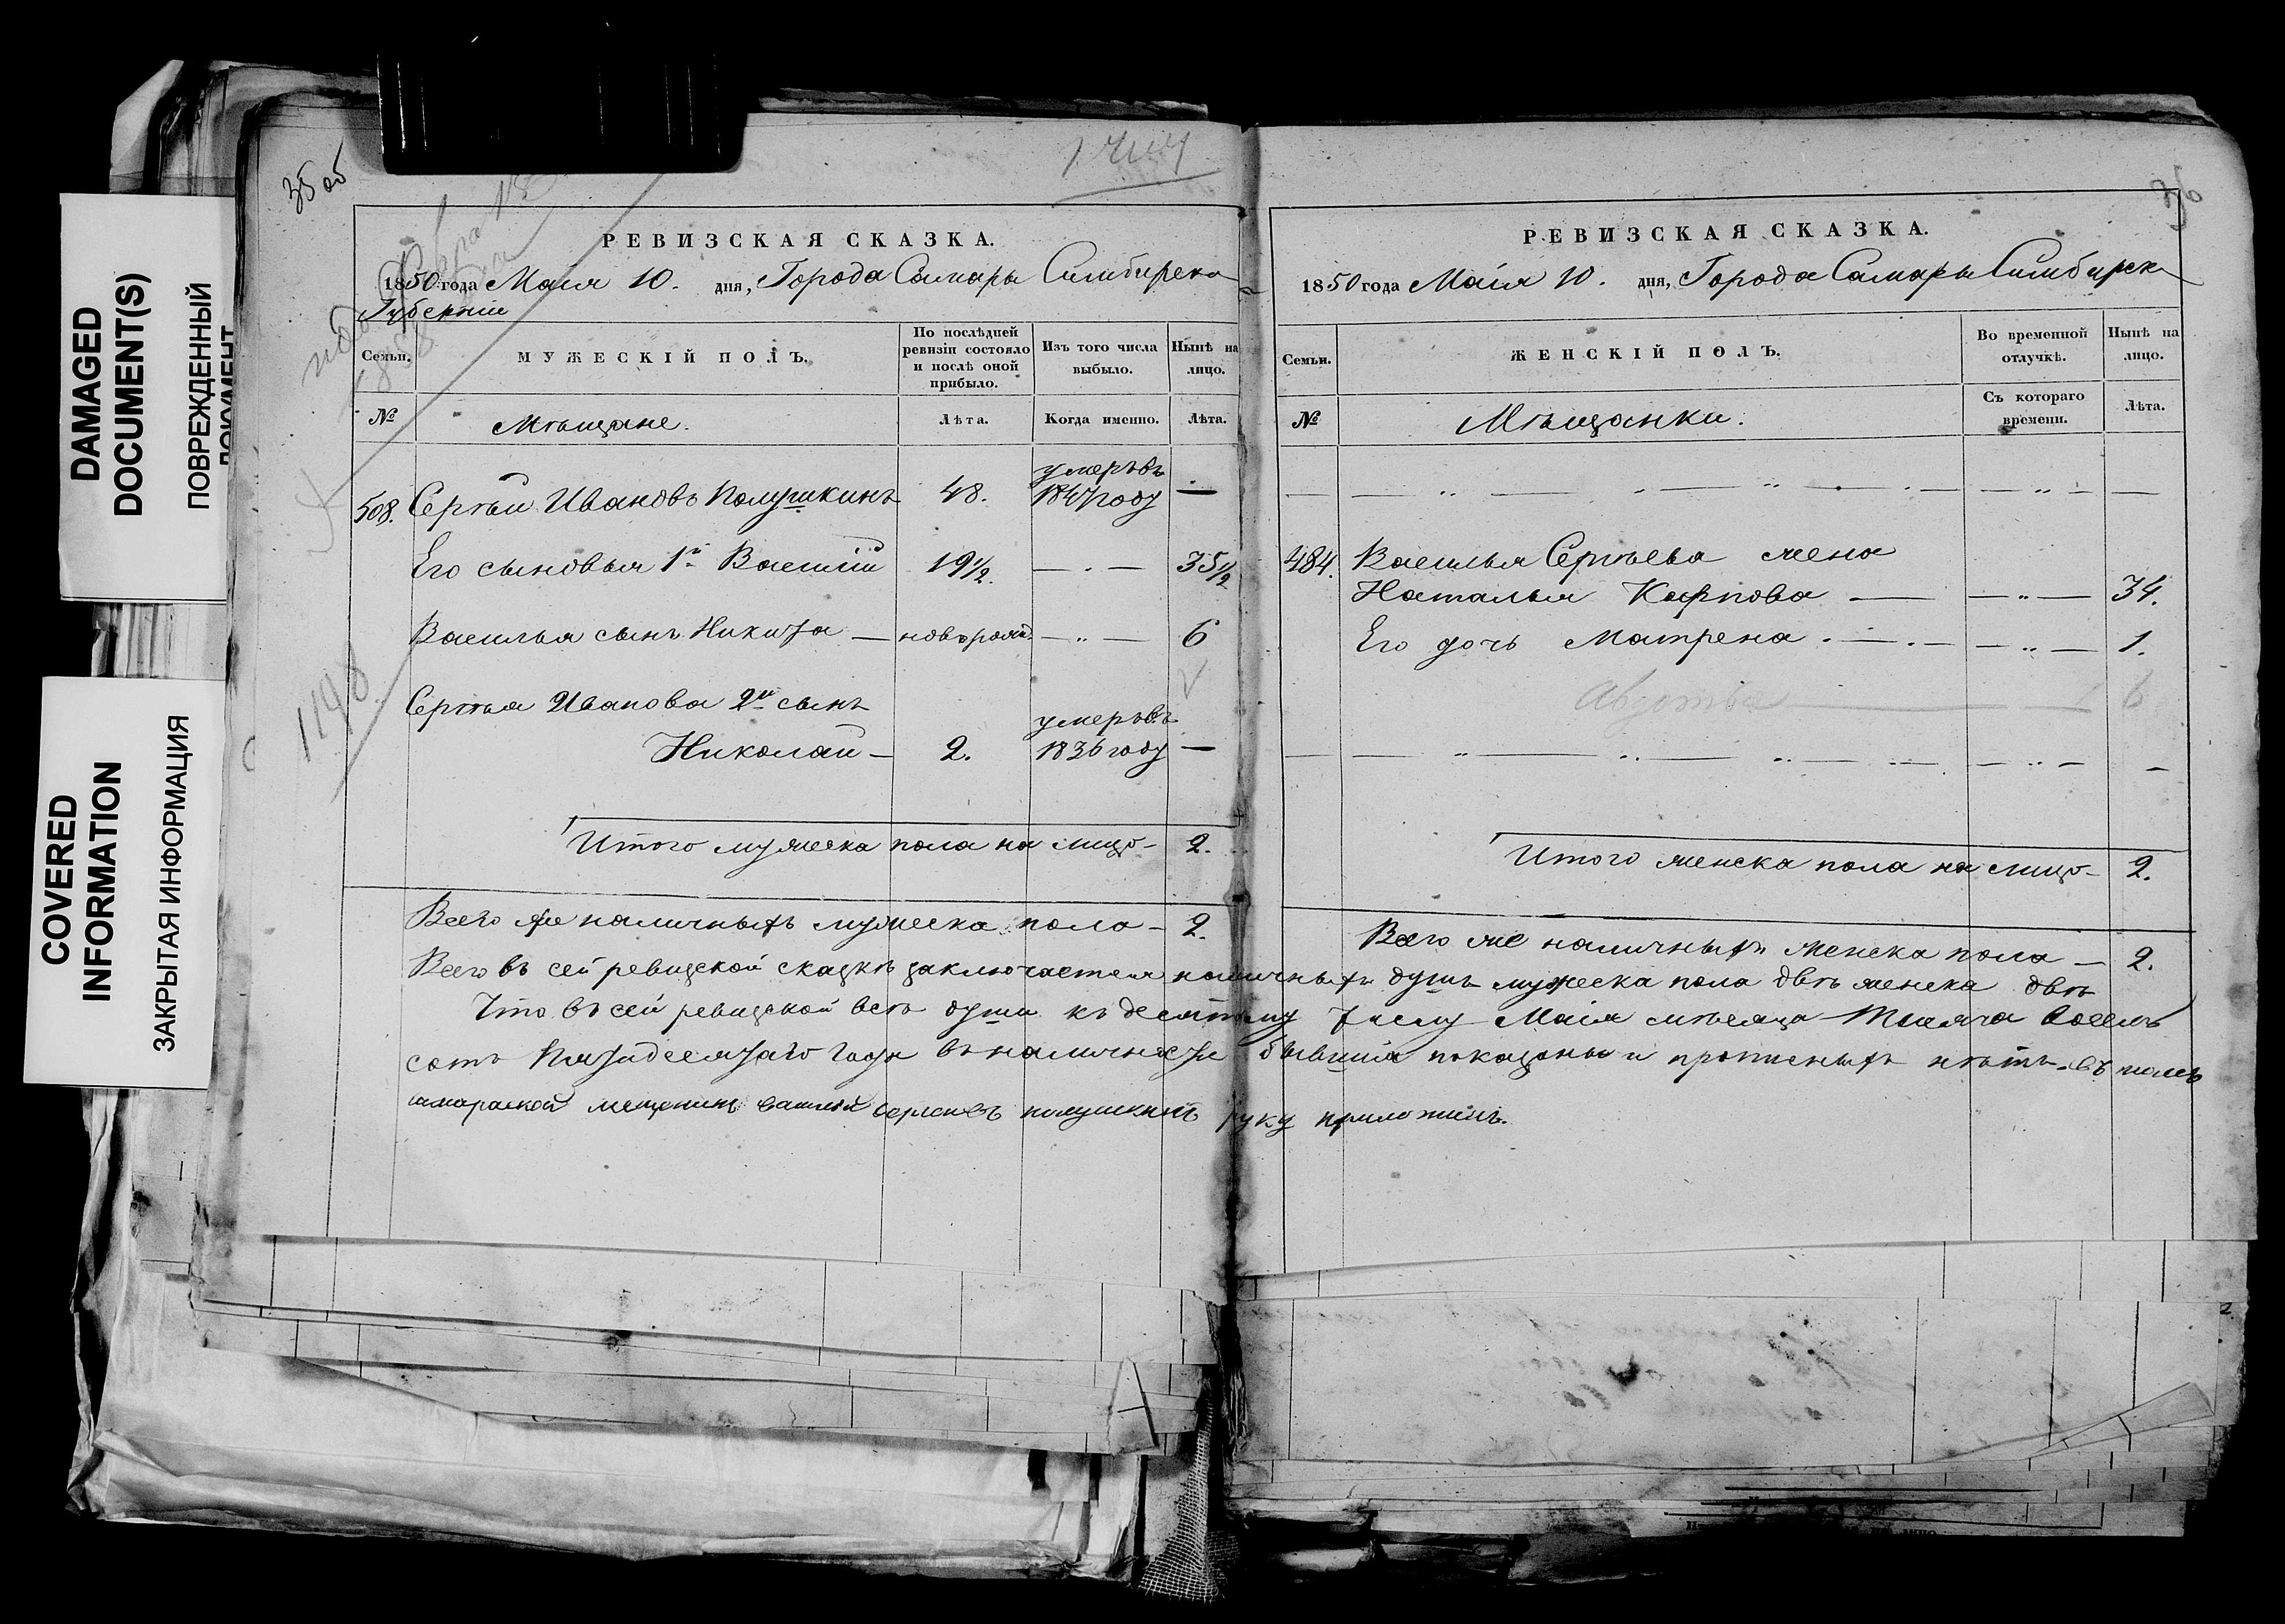 DAMAGED
DOCUMENT(S)
ПОВРЕЖДЕННЫЙ
ДОКУМЕНТ
COVERED
INFORMATION
ЗАКРЫТАЯ ИНФОРМАЦИЯ
35 об
1198
РЕВИЗСКАЯ СКАЗКА.
1850 года Маiя 10. дня, Города Самары Симбирской
Губернiи
Семьи. МУЖЕСКIЙ ПОЛЪ. По послѣдней ревизiи состояло и послѣ оной прибыло. Изъ того числа выбыло. Нынѣ на лицо.
№ Мѣщане. Лѣта. Когда именно. Лѣта.
508. Сергѣй Ивановъ Полушкинъ 48. умеръ въ 1847 году —
Его сыновья 1й Василiй 19 1/2. — 35 1/2
Василья сынъ Никита — новорожд. — 6
Сергѣя Иванова 2й сынъ
Николай — 2. умеръ въ 1836 году —
Итого мужеска пола на лицо — 2.
Всего же наличныхъ мужеска пола — 2.
36
РЕВИЗСКАЯ СКАЗКА.
1850 года Маiя 10. дня, Города Самары Симбирск
Семьи. ЖЕНСКIЙ ПОЛЪ. Во временной отлучкѣ. Нынѣ на лицо.
№ Мѣщанки. Съ котораго времени. Лѣта.
484. Василья Сергѣева жена
Наталья Карпова — 34.
Его дочь Матрена — 1.
Авдотья 6
Итого женска пола на лицо — 2.
Всего же наличныхъ женска пола — 2.
Всего въ сей ревизской сказкѣ заключается наличныхъ душъ мужеска пола двѣ женска двѣ
Что въ сей ревизской всѣ души къ десятому числу Маiя мѣсяца Тысяча восемь
сотъ Пятидесятаго года въ наличности бывшiя показаны и прописныхъ нѣтъ. въ томъ
самарской мещенинъ василей сергеивъ полушкинъ руку приложилъ.